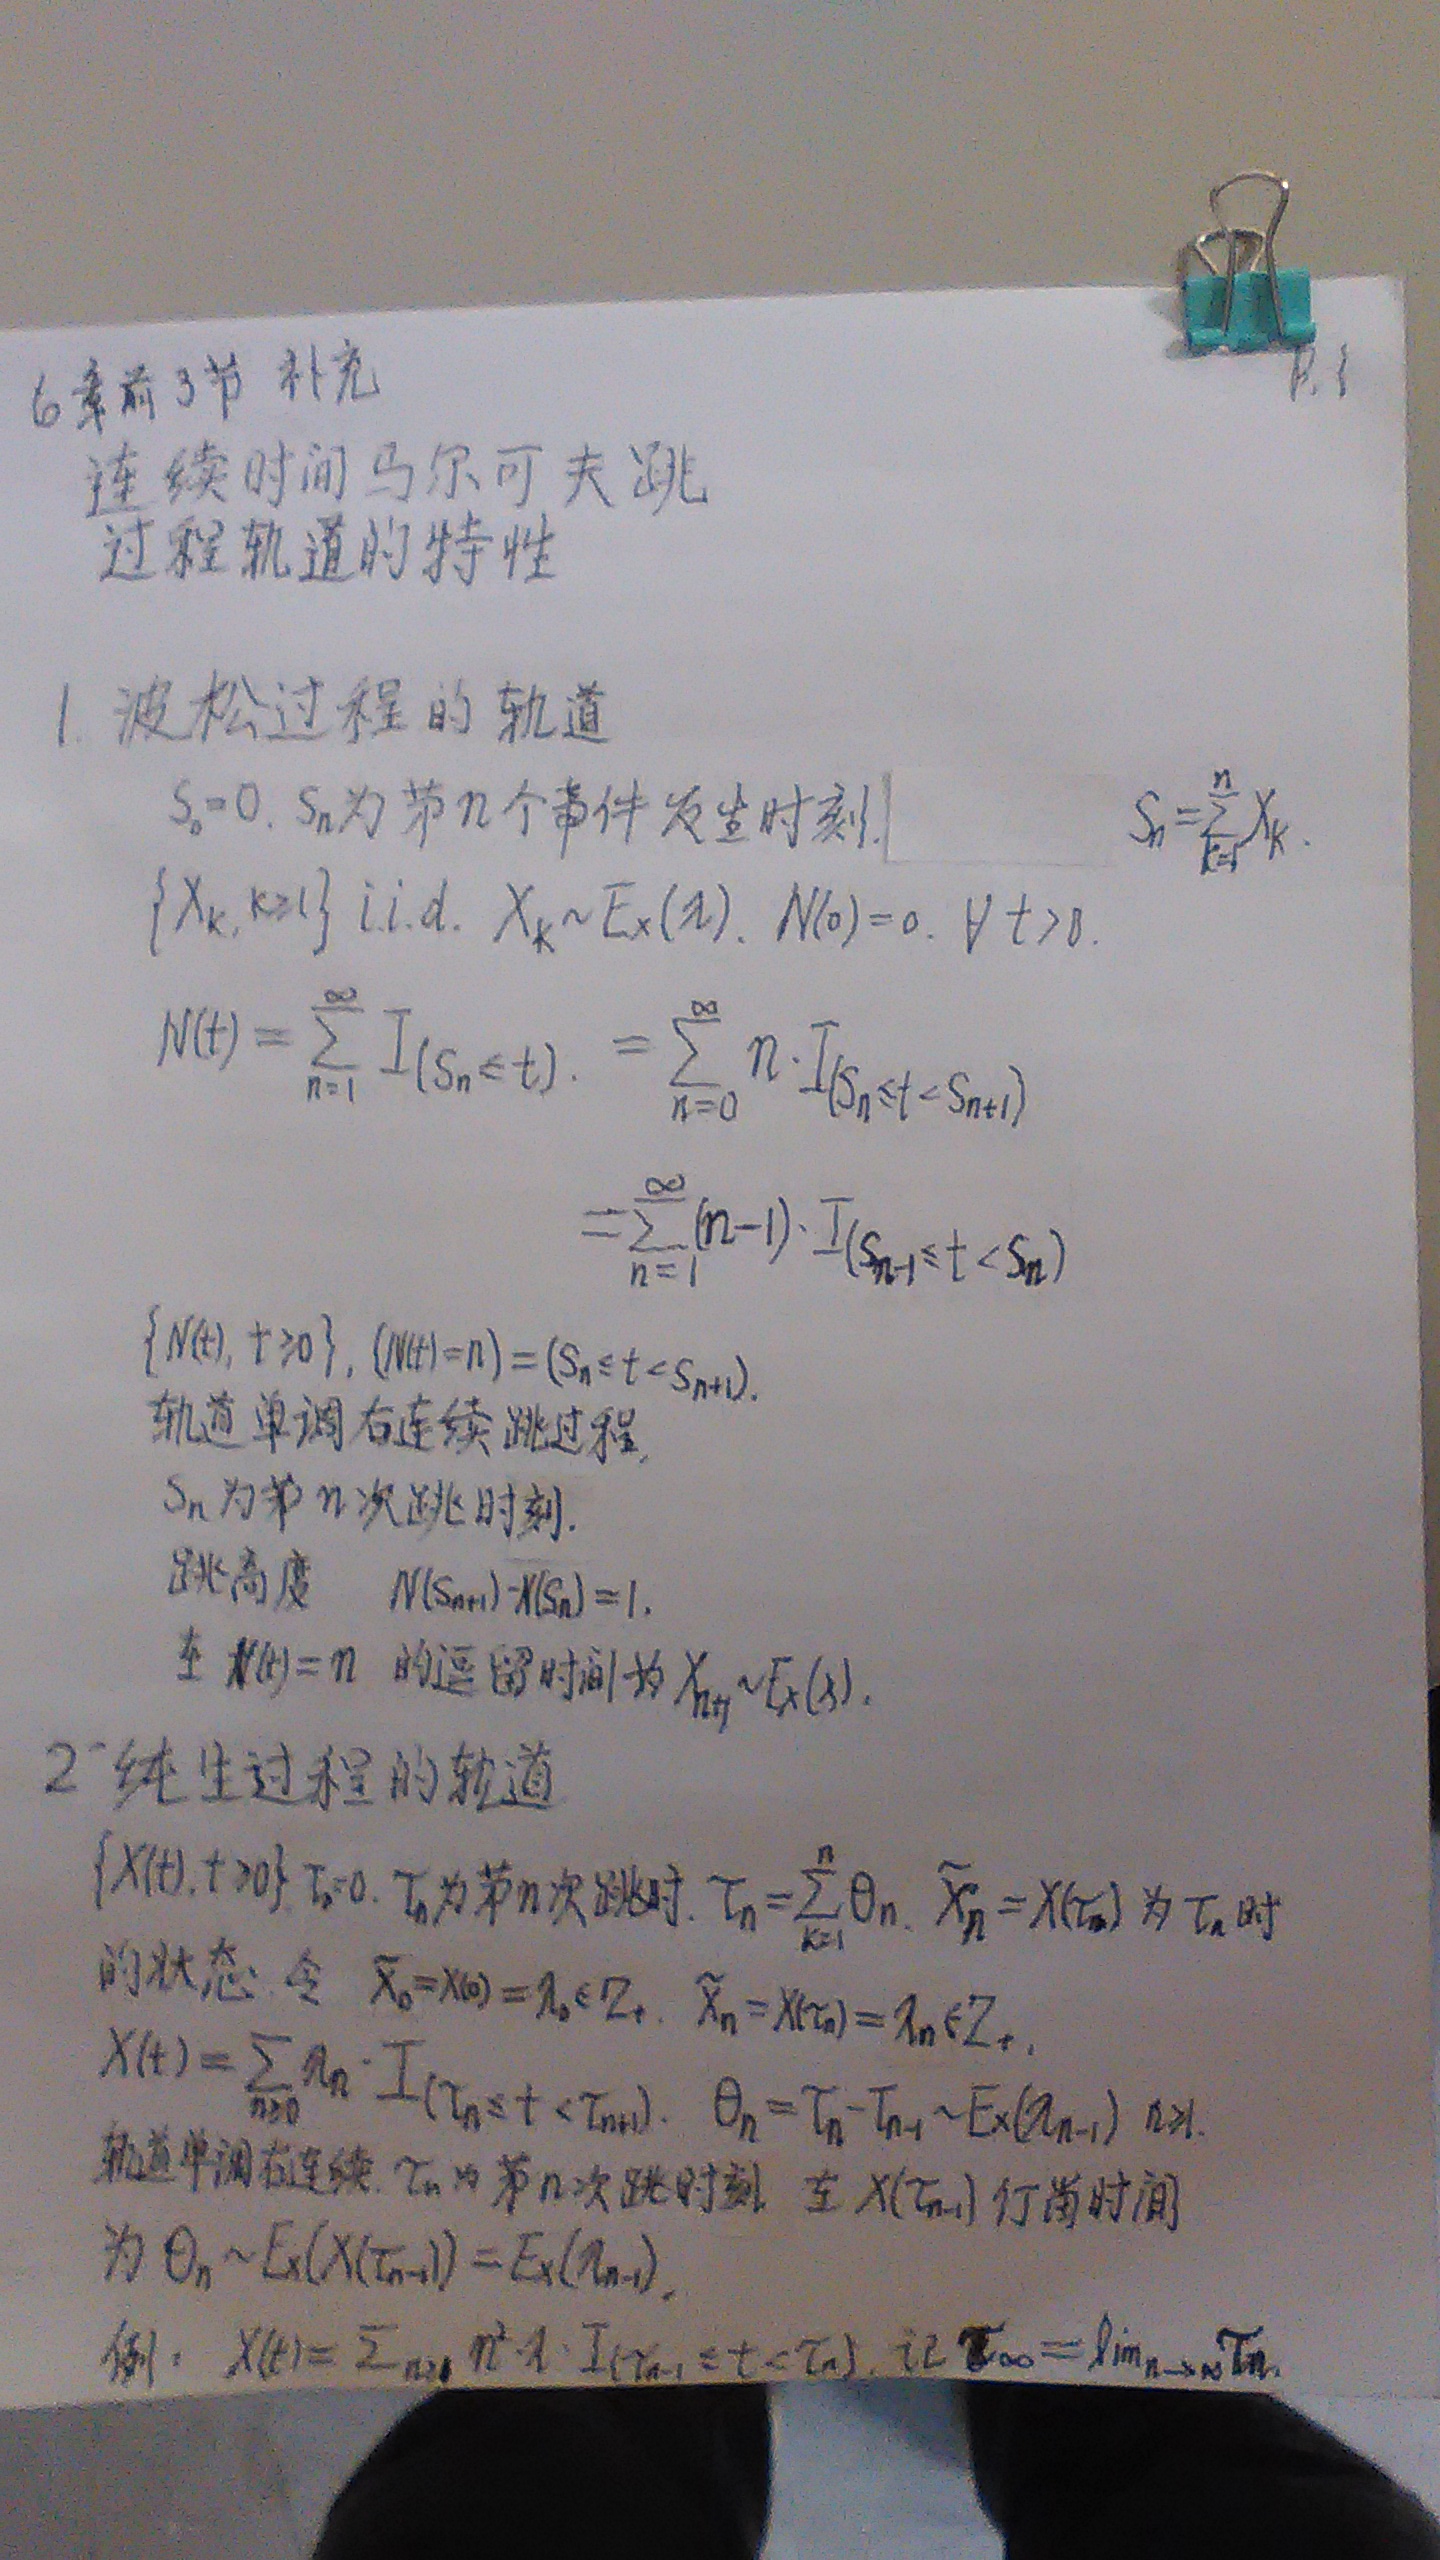 P.1
6章前3节 补充
连续时间马尔可夫跳
过程轨道的特性
1. 波松过程的轨道
S₀=0. Sₙ为第n个事件发生时刻. Sₙ=∑ₖ₌₁ⁿXₖ.
{Xₖ, k≥1} i.i.d. Xₖ~Ex(λ). N(0)=0. ∀t>0.
N(t)=∑ₙ₌₁^∞ I(Sₙ≤t). =∑ₙ₌₀^∞ n·I(Sₙ≤t<Sₙ₊₁)
=∑ₙ₌₁^∞(n-1)·I(Sₙ₋₁≤t<Sₙ)
{N(t), t≥0}, (N(t)=n)=(Sₙ≤t<Sₙ₊₁).
轨道单调右连续跳过程.
Sₙ为第n次跳时刻.
跳高度 N(Sₙ₊₁)-N(Sₙ)=1.
在 N(t)=n 的逗留时间为 Xₙ₊₁~Ex(λ).
2 纯生过程的轨道
{X(t), t≥0} τ₀=0. τₙ为第n次跳时. τₙ=∑ₖ₌₁ⁿθₙ. X̃ₙ=X(τₙ) 为 τₙ时
的状态. 令 X̃₀=X(0)=λ₀∈Z₊. X̃ₙ=X(τₙ)=λₙ∈Z₊.
X(t)=∑ₙ≥₀ λₙ·I(τₙ≤t<τₙ₊₁). θₙ=τₙ-τₙ₋₁~Ex(λₙ₋₁) n≥1.
轨道单调右连续. τₙ为第n次跳时刻 在 X(τₙ₋₁) 时间
为 θₙ~Ex(X(τₙ₋₁))=Ex(λₙ₋₁).
例. X(t)=∑ₙ≥ n²·λ·I(τₙ₋₁≤t<τₙ). 记 τ∞=limₙ→∞τₙ.